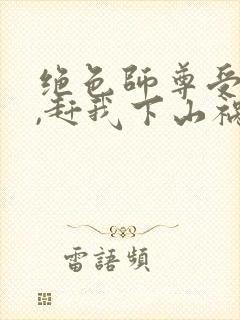 绝色師尊受
,赶我下山祸
雷語頻